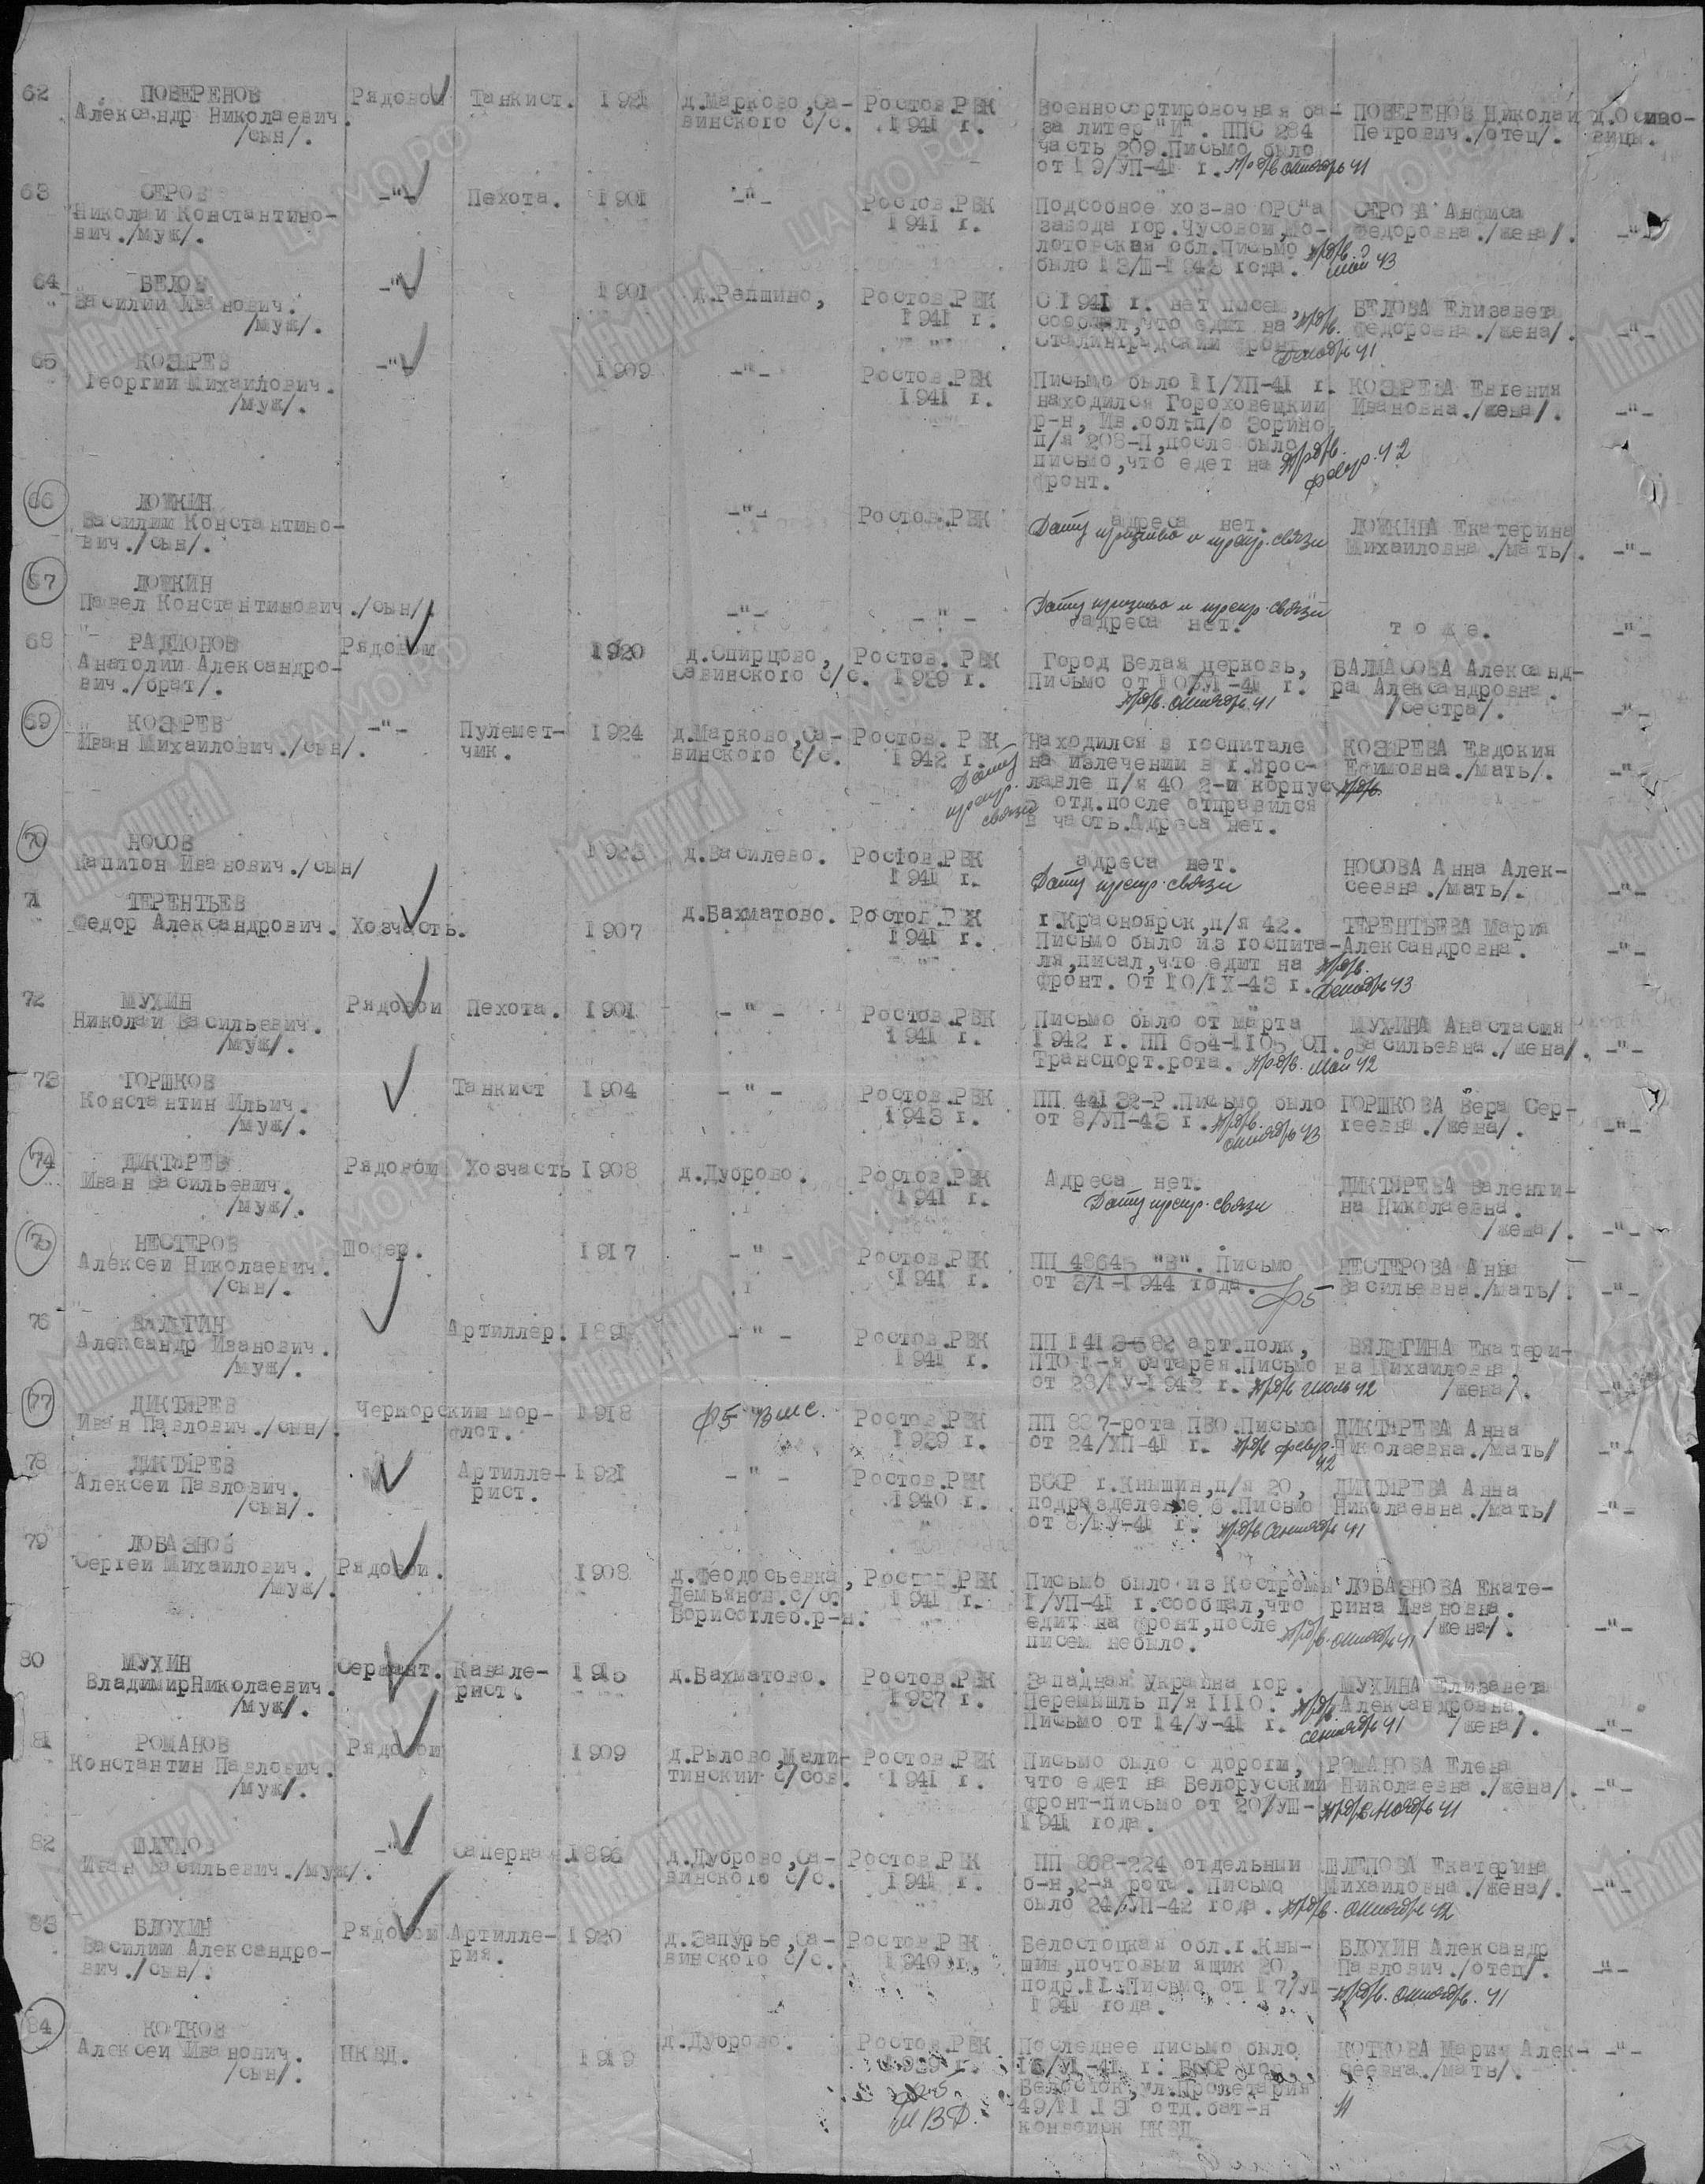 62 ПОВЕРЕНОВ Рядовой Танкист. 1921 д.Марково,Са- Ростов.РВК Военносортировочная ба- ПОВЕРЕНОВ Николай д.Осипо-
Александр Николаевич. винского с/с. 1941 г. за литер "И". ППС 284 Петрович./отец/. вицы.
/сын/. часть 209.Письмо было
от 19/УП-41 г. Проп/б октябрь 41
63 СЕРОВ -"- Пехота. 1901 -"- Ростов.РВК Подсобное хоз-во ОРС"а СЕРОВА Анфиса
Николай Константино- 1941 г. завода гор.Чусовой,Мо- Федоровна./жена/. -"-
вич./муж/. лотовская обл.Письмо
было 13/Ш-1943 года. май 43
64 БЕЛОВ -"- 1901 д.Репшино, Ростов.РВК С 1941 г. нет писем, БЕЛОВА Елизавета
Василий Иванович. 1941 г. сообщал,что едит на Федоровна./жена/. -"-
/муж/. Сталинградский фронт. декабрь 41
65 КОЗЫРЕВ -"- 1909 -"- Ростов.РВК Письмо было 11/ХП-41 г. КОЗЫРЕВА Евгения
Георгий Михайлович. 1941 г. находился Гороховецкий Ивановна./жена/. -"-
/муж/. р-н, Ив.обл.п/о Зорино
п/я 208-П,после было
письмо,что едет на февр. 42
фронт.
66 ЛОЖКИН -"- Ростов.РВК адреса нет. ЛОЖКИНА Екатерина
Василий Константино- Дату призыва и прекр. связи Михайловна./мать/. -"-
вич./сын/.
67 ЛОЖКИН Дату призыва и прекр. связи
Павел Константинович./сын/. -"- -"- адреса нет. т о ж е. -"-
68 РАДИОНОВ Рядовой 1920 д.Спирцово, Ростов. РВК Город Белая церковь, БАЛМАСОВА Александ-
Анатолий Александро- Савинского с/с. 1939 г. Письмо от 10/УІ-41 г. ра Александровна.
вич./брат/. октябрь 41 /сестра/. -"-
69 КОЗЫРЕВ -"- Пулемет- 1924 д.Марково,Са- Ростов. РВК Находился в госпитале КОЗЫРЕВА Евдокия
Иван Михайлович./сын/. чик. винского с/с. 1942 г. на излечении в г.Ярос- Ефимовна./мать/. -"-
Дату прекр. связи лавле п/я 40 2-й корпус
отд.после отправился
в часть.Адреса нет.
70 НОСОВ 1923 д.Василево. Ростов.РВК адреса нет. НОСОВА Анна Алек-
Капитон Иванович./сын/ 1941 г. Дату прекр. связи сеевна./мать/. -"-
71 ТЕРЕНТЬЕВ д.Бахматово. Ростов.РВК г.Красноярск,п/я 42. ТЕРЕНТЬЕВА Мария
Федор Александрович. Хозчасть. 1907 1941 г. Письмо было из госпита- Александровна. -"-
ля,писал,что едит на
фронт. От 10/ІХ-43 г. декабрь 43
72 МУХИН Рядовой Пехота. 1901 - " - Ростов.РВК Письмо было от марта МУХИНА Анастасия
Николай Васильевич. 1941 г. 1942 г. ПП 654-1105 СП. Васильевна./жена/. -"-
/муж/. Транспорт.рота. май 42
73 ГОРШКОВ Танкист 1904 - " - Ростов.РВК ПП 44132-Р.Письмо было ГОРШКОВА Вера Сер-
Константин Ильич. 1943 г. от 8/УП-43 г. октябрь 43 геевна./жена/. -"-
/муж/.
74 ДИКТЯРЕВ Рядовой Хозчасть 1908 д.Дуброво. Ростов.РВК Адреса нет. ДИКТЯРЕВА Валенти-
Иван Васильевич. 1941 г. Дату прекр. связи на Николаевна.
/муж/. /жена/. -"-
75 НЕСТЕРОВ Шофер. 1917 - " - Ростов.РВК ПП 48645 "В". Письмо НЕСТЕРОВА Анна
Алексей Николаевич. 1941 г. от 3/1-1944 года. ф5 Васильевна./мать/. -"-
/сын/.
76 ВЯЛЬГИН Артиллер. - " - Ростов.РВК ПП 1413-582 арт.полк, ВЯЛЬГИНА Екатери-
Александр Иванович. 1941 г. ПТО 1-я батарея.Письмо на Михайловна,
/муж/. от 28/ІУ-1942 г. июль 42 /жена/. -"-
77 ДИКТЯРЕВ Черморский мор- 1918 ф5 Ростов.РВК ПП 887-рота ПВО.Письмо ДИКТЯРЕВА Анна
Иван Павлович./сын/. флот. 1939 г. от 24/ХП-41 г. февр. 42 Николаевна./мать/ -"-
78 ДИКТЯРЕВ Артилле- 1921 - " - Ростов.РВК БССР г.Кнышин,п/я 20, ДИКТЯРЕВА Анна
Алексей Павлович. рист. 1940 г. подразделение 6.Письмо Николаевна./мать/ -"-
/сын/. от 8/ІУ-41 г. Сентябрь 41
79 ЛОБАЗНОВ
Сергей Михайлович. Рядовой. 1908 д.Феодосьевка, Ростов.РВК Письмо было из Костромы ЛОБАЗНОВА Екате-
/муж/. Демьянов.с/с. 1941 г. 1/УП-41 г.сообщал,что рина Ивановна.
Борисоглеб.р-н. едит на фронт,после /жена/. -"-
писем небыло. октябрь 41
80 МУХИН Сержант. Кавале- 1915 д.Бахматово. Ростов.РВК Западная Украина гор. МУХИНА Елизавета
ВладимирНиколаевич. рист. 1937 г. Перемышль п/я 1110. Александровна.
/муж/. Письмо от 14/У-41 г. сентябрь 41 /жена/. -"-
81 РОМАНОВ Рядовой 1909 д.Рылово,Мали- Ростов.РВК Письмо было с дороги, РОМАНОВА Елена
Константин Павлович. тинский с/сов. 1941 г. что едет на Белорусский Николаевна./жена/. -"-
/муж/. фронт-письмо от 20/УШ- ноябрь 41
1941 года.
82 ШЛЕПОВ -"- Саперная. 1896 д.Дуброво,Са- Ростов.РВК ПП 868-224 отдельный ШЛЕПОВА Екатерина
Иван Васильевич./муж/. винского с/с. 1941 г. б-н,2-я рота. Письмо Михайловна./жена/. -"-
было 24/УП-42 года. октябрь 42
83 БЛОХИН Рядовой Артилле- 1920 д.Запурье,Са- Ростов.РВК Белостоцкая обл.г.Кны- БЛОХИН Александр
Василий Александро- рия. винского с/с. 1940 г. шин,почтовый ящик 20, Павлович./отец/. -"-
вич./сын/. подр.11.Письмо от 17/УІ октябр. 41
1941 года.
84 КОТКОВ д.Дуброво. Ростов.РВК Последнее письмо было КОТКОВА Мария Алек- -"-
Алексей Иванович. НКВД. 1919 1939 г. БССР гор. сеевна./мать/.
/сын/. Белосток,ул.Пролетария
МВД. 49/11 131 отд.бат-н
конвойн НКВД.